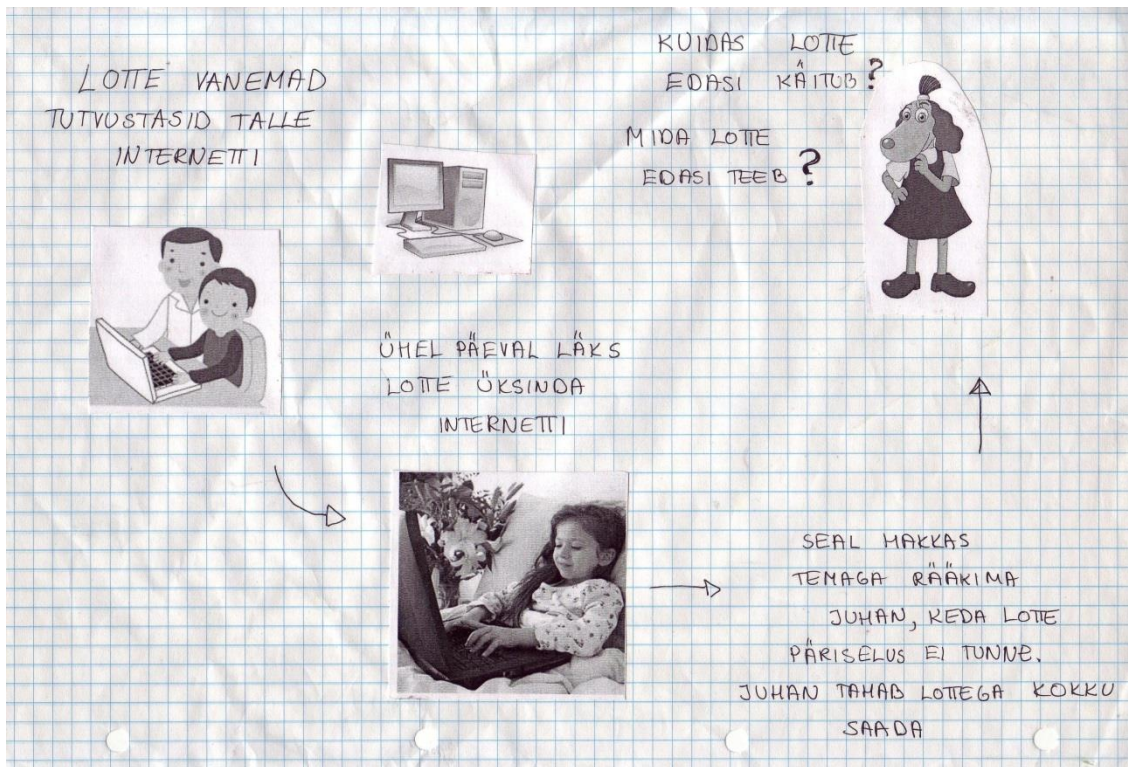 LOTTE VANEMAD
TUTVUSTASID TALLE
INTERNETTI
ÜHEL PÄEVAL LÄKS
LOTTE ÜKSINDA
INTERNETTI
SEAL HAKKAS
TEMAGA RÄÄKIMA
JUHAN, KEDA LOTTE
PÄRISELUS EI TUNNE.
JUHAN TAHAB LOTTEGA KOKKU
SAADA
KUIDAS LOTTE
EDASI KÄITUB?
MIDA LOTTE
EDASI TEEB?